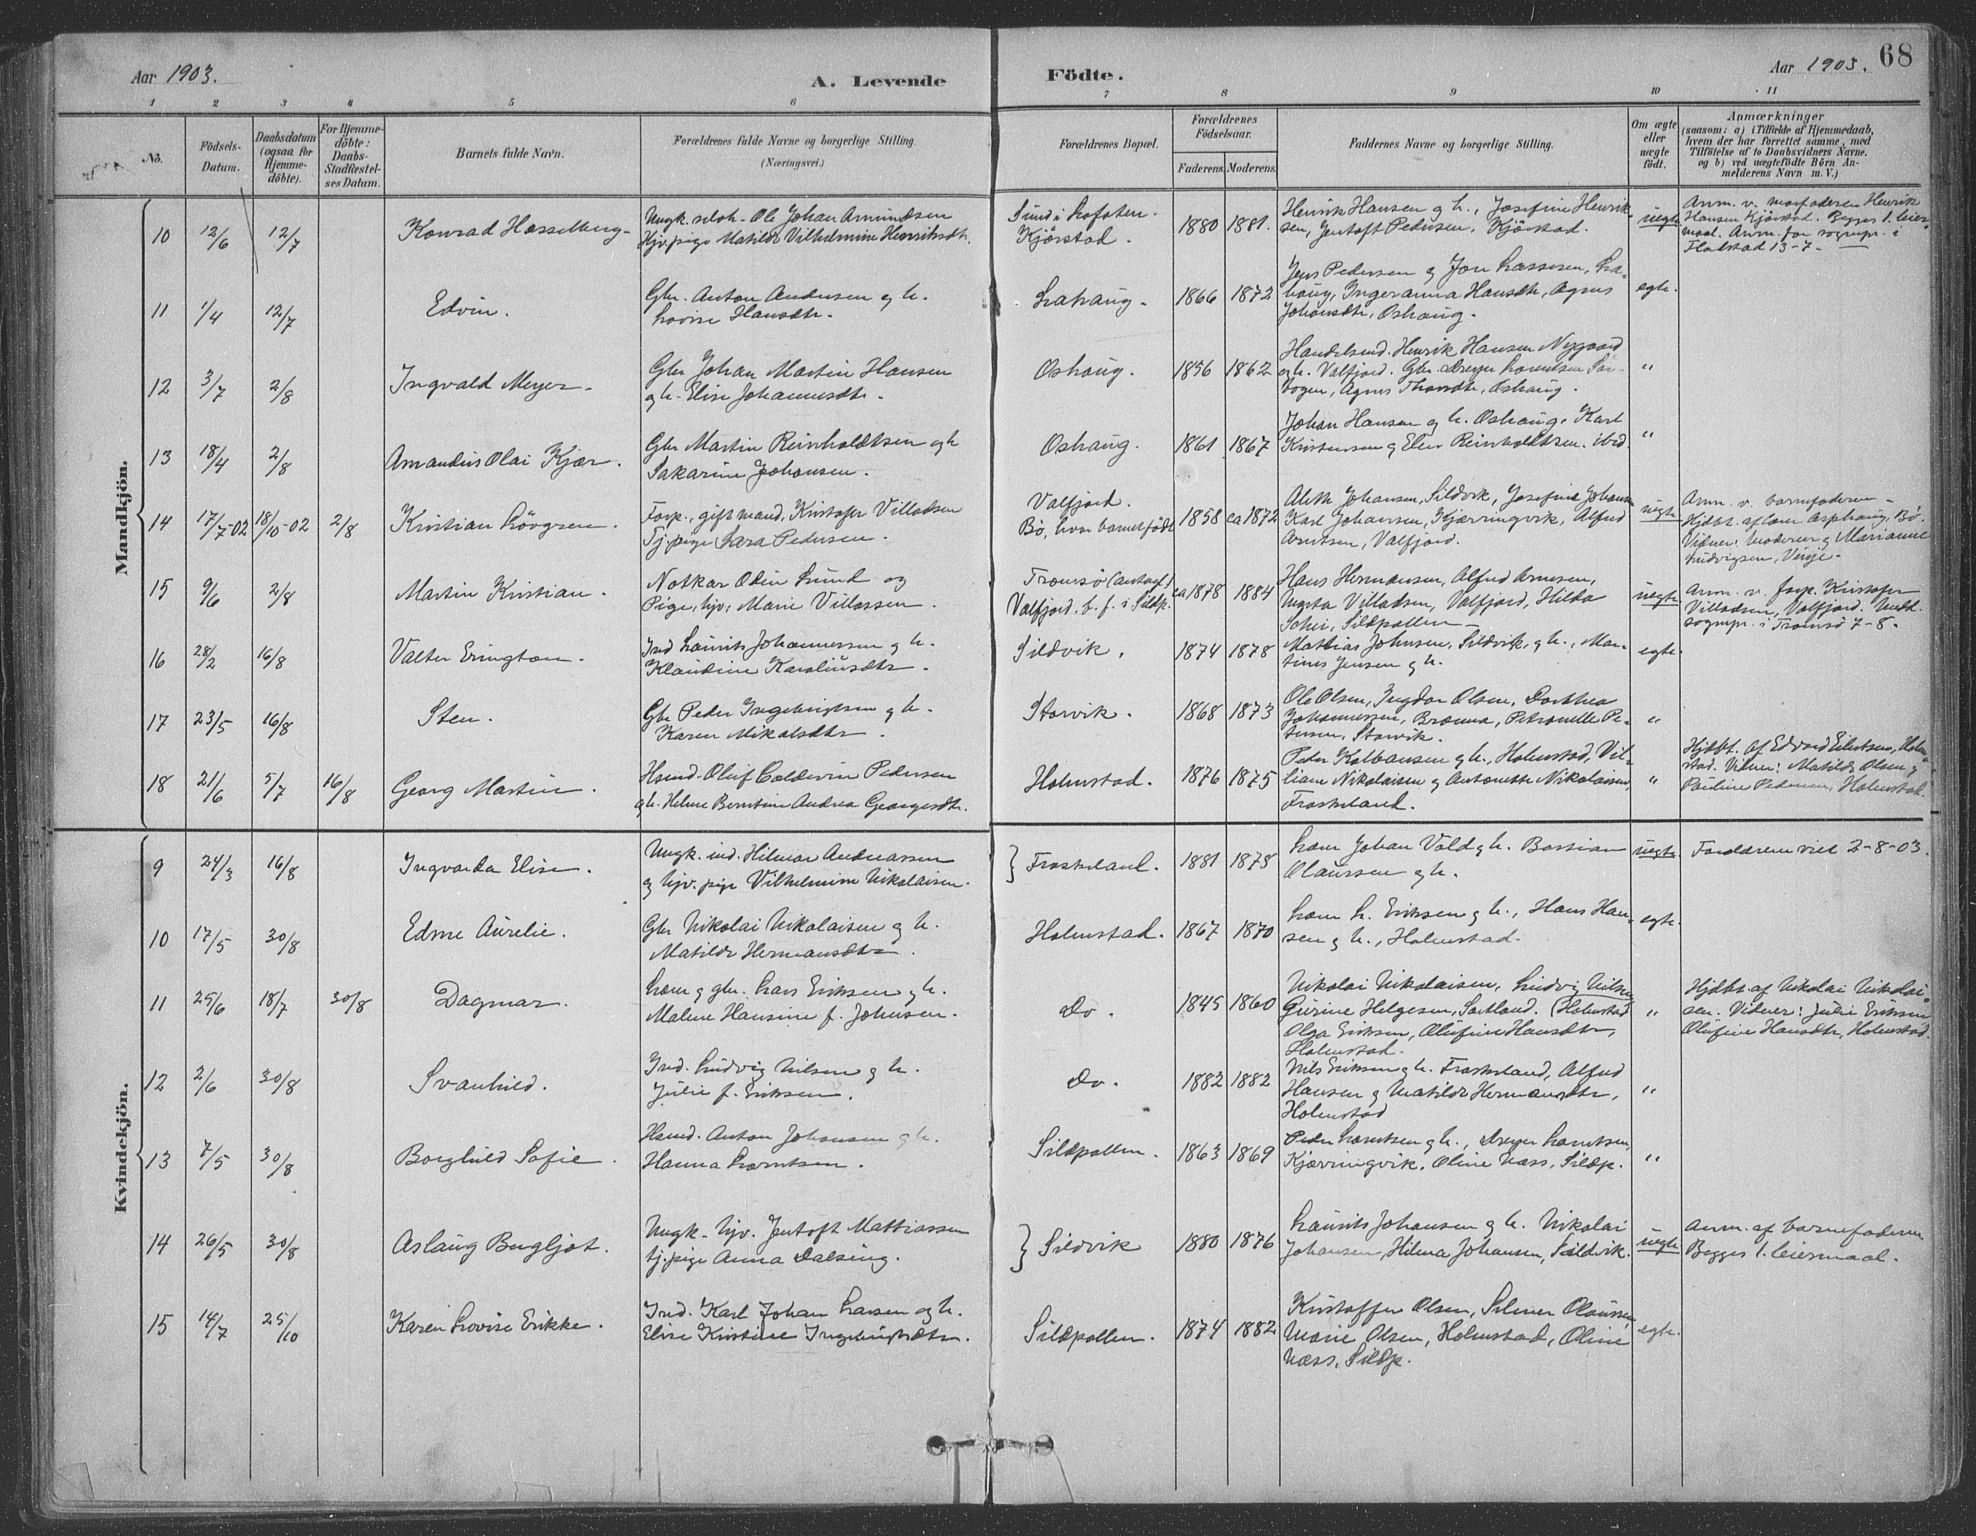 Aar 1903.
A. Levende
Födte.
Aar 1903.
68
1 2 3 4 5 6 7 8 9 10 11
No.
Födsels-
Datum.
Daabsdatum
(ogsaa for
Hjemme-
döbte).
For Hjemme-
döbte:
Daabs-
Stadfæstel-
ses Datum.
Barnets fulde Navn.
Forældrenes fulde Navne og borgerlige Stilling.
(Næringsvei.)
Forældrenes Bopæl.
Forældrenes
Födselsaar.
Faderens. Moderens.
Faddernes Navne og borgerlige Stilling.
Om ægte
eller
uægte
födt.
Anmærkninger
(saasom: a) i Tilfælde af Hjemmedaab,
hvem der har forrettet samme, med
Tilföielse af to Daabsvidners Navne,
og b) ved uægtefödte Börn An-
melderens Navn m. V.)
Mandkjön.
10 12/6 12/7 Konrad Hasselberg
Ungk. seloh. Ole Johan Amundsen
Hjv. pige Matilde Vilhelmine Henriksdtr.
Sund i Lofoten.
Kjörstad.
1880 1881.
Henrik Hansen og h., Josefine Henrik-
sen, Jentoft Pedersen, Kjörstad.
uegte
Anm. v. morfaderen Henrik
Hansen Kjörstad. Begges 1. leier-
maal. Anm. for sognepr. i
Flakstad 13-7.
11 1/4 12/7 Edvin.
Gbr. Anton Andersen og h.
Lovise Hansdtr.
Lahaug.
1866 1872
Jens Pedersen og Jon Lassesen, La-
haug, Ingeranna Hansdtr, Agnes
Johansdtr, Oshaug.
egte.
12 3/7 2/8 Ingvald Meyer.
Gbr Johan Martin Hansen
og h. Elise Johannesdtr.
Oshaug.
1856 1862
Handelsmd. Henrik Hansen Nygaard
og h. Valfjord. Gbr Dreyer Lorentsen Sör-
bogen, Agnes Thorsdtr, Oshaug.
"
13 18/4 2/8 Amandus Olai Kjær.
Gbr Martin Reinholdtsen og h
Sakarine Johansen.
Oshaug.
1861 1867
Johan Hansen og h. Oshaug. Karl
Kristensen og Elen Reinholdtsen. ibid.
"
14 17/7-02 18/10-02 2/8 Kristian Lövgren.
Forp., gift mand, Kristofer Villadsen
Tj. pige Sara Pedersen.
Valfjord.
Bö, hvor barnet födt
1858 ca 1872
Aleth Johansen, Sildvik, Josefine Johansen
Karl Johansen, Kjærringvik, Alfred
Arntsen, Valfjord.
uegte
Anm. v. barnefaderen.
Hjdbt. af lær Asphaug. Bö.
Vidner: Moderen og Marianne
Ludvigsen, Vinje.
15 9/6 2/8 Martin Kristian.
Notkar Odin Lund og
Pige, hjv, Marie Villassen.
Tromsö (antagl.)
Valfjord. b. f. i Sildp.
ca 1878 1884
Hans Hermansen, Alfred Arntsen,
Marta Villadsen, Valfjord, Hilda
Sohn, Sildpollen.
uegte
Anm. v. forp. Kristofer
Villadsen, Valfjord. Medt.
sognepr. i Tromsö 7-8.
16 28/2 16/8 Valter Erington.
Ind Laurits Johannessen og h.
Klaudine Karoliusdtr.
Sildvik.
1874 1878
Mattias Johnsen, Sildvik, og h., Mar-
tines Jensen og h.
egte.
17 23/5 16/8 Sten.
Gbr Peder Ingebrigtsen og h.
Karen Mikalsdtr.
Storvik.
1868 1873
Ole Olsen, Ingdor Olsen, Dorthea
Johannessen, Brænna, Petronelle Pe-
tersen, Storvik.
"
18 21/6 5/7 16/8 Georg Martin.
Husmd. Oluf Coldevin Pedersen
og h. Helene Berntine Andrea Georgesdtr.
Holmstad.
1876 1875
Peder Kolbansen og h., Holmstad, Vil-
liam Nikolaisen og Antonette Nikolaisen,
Froskeland.
"
Hjdbt. af Edvard Eilertsen, Holm-
stad. Vidner: Matilde Olsen og
Pauline Pedersen, Holmstad.
Kvindekjön.
9 24/3 16/8 Ingvarda Elise.
Ungk. ind. Hilmar Andreassen
og hjv. pige Vilhelmine Nikolaisen.
Froskeland.
1881 1878
Lærer Johan Vold og h. Bastian
Olaussen og h.
uegte
Forældrene viet 2-8-03.
10 17/5 30/8 Edme Aurelie.
Gbr Nikolai Nikolaisen og h.
Matilde Hermansdtr.
Holmstad.
1867 1870
Lærer L. Eriksen og h., Hans Han-
sen og h., Holmstad.
egte.
11 25/6 18/7 30/8 Dagmar.
Lærer og gbr. Lars Eriksen og h.
Malene Hansine f. Johnsen.
Do.
1845 1860
Nikolai Nikolaisen, Ludvig Nilsen
Gurine Helgesen, Sortland. (Holmstad
Olga Eriksen, Olufine Hansdtr,
Holmstad.
"
Hjdbt af Nikolai Nikolai-
sen. Vidner: Julie Eriksen
Olufine Hansdtr, Holmstad.
12 2/6 30/8 Svanhild.
Ind. Ludvig Nilsen og h.
Julie f. Eriksen.
Do.
1882 1882
Nils Eriksen og h. Froskeland, Alfred
Hansen og Matilde Hermansdtr,
Holmstad
"
13 7/5 30/8 Borghild Sofie.
Husmd. Anton Johansen og h.
Hanna Lorntsen.
Sildpollen.
1863 1869
Peder Lorntsen og h., Dreyer Lorntsen,
Kjærringvik, Oline Næss, Sildp.
"
14 26/5 30/8 Aslaug Bergljot.
Ungk. hjv. Jentoft Mattiassen
tj. pige Anna Dalsing.
Sildvik
1880 1876
Laurits Johansen og h. Nikolai
Johansen, Hilma Johansen, Sildvik.
uegte
Anm. af barnefaderen
Begges 1. leiermaal.
15 14/7 25/10 Karen Lovise Erikke.
Ind. Karl Johan Larsen og h.
Elise Kristine Ingebrigtsdtr.
Sildpollen.
1874 1882
Kristoffer Olsen, Selmer Olaussen,
Marie Olsen, Holmstad, Oline
Næss, Sildp.
egte.